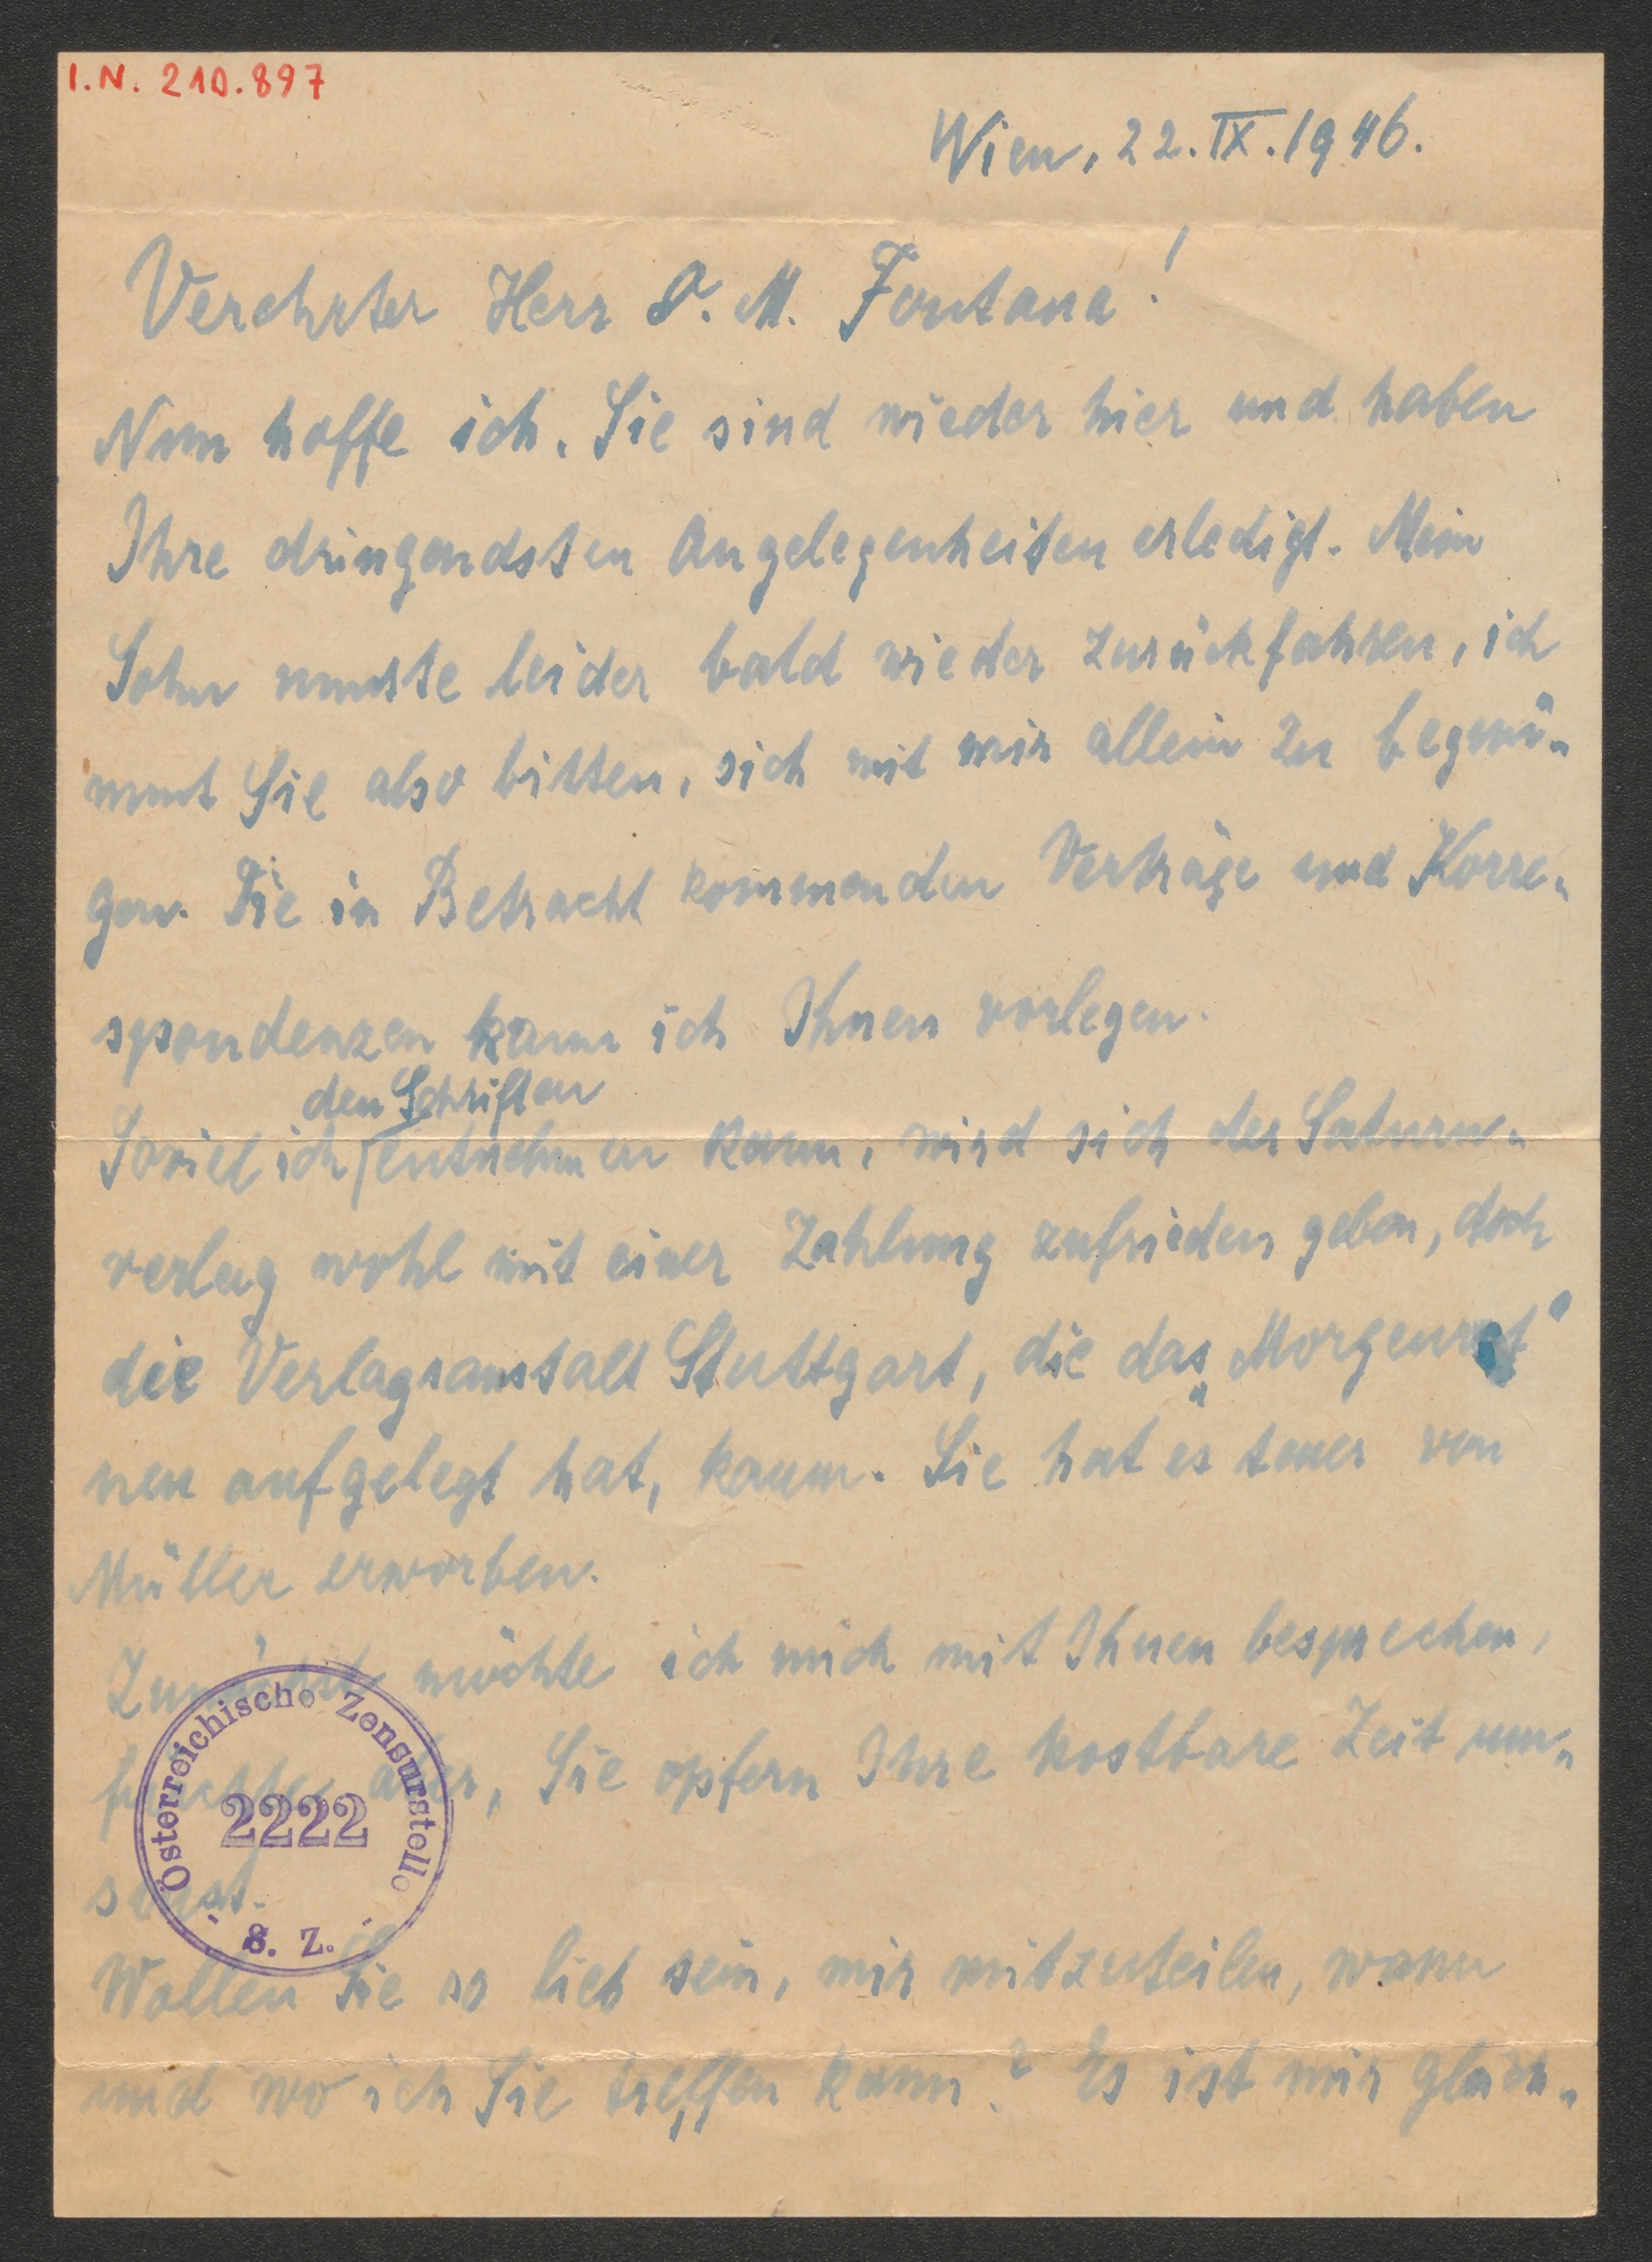 I.N. 210.897
Wien, 22. IX. 1946.
Verehrter Herr O. M. Fontana!
Nun hoffe ich. Sie sind wieder hier und haben
Ihre dringendsten Angelegenheiten erledigt. Mein
Sohn musste leider bald wieder zurückfahren, ich
muss Sie also bitten, sich mit mir allein zu begnü-
gen. Die in Betracht kommenden Verträge und Korre-
spondenzen kann ich Ihnen vorlegen.
den Schriften
Soviel ich entnehmen kann, wird sich der Saturn-
verlag wohl mit einer Zahlung zufrieden geben, doch
die Verlagsanstalt Stuttgart, die das „Morgenrot"
neu aufgelegt hat, kaum. Sie hat es teuer von
Müller erworben.
Zunächst möchte ich mich mit Ihnen besprechen,
fürchte aber, Sie opfern Ihre kostbare Zeit um-
sonst.
Österreichische Zensurstelle
2222
S. Z.
Wollen Sie so lieb sein, mir mitzuteilen, wann
und wo ich Sie treffen kann? Es ist mir gleich-